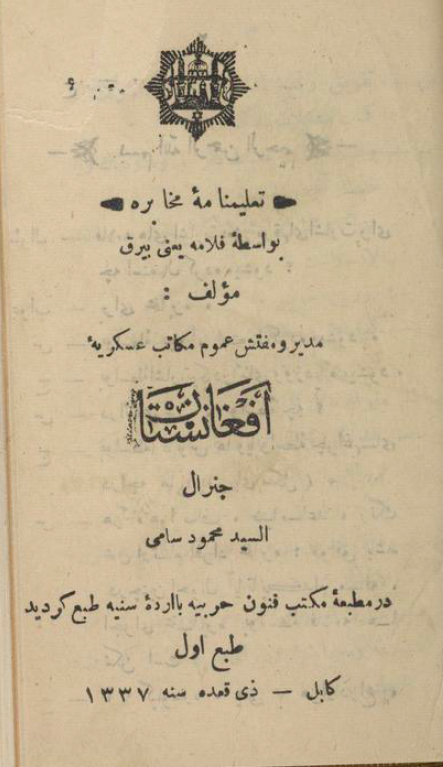 تعلیمنامهٔ مخابره
بواسطهٔ فلامه یعنی بیرق
مؤلف :
مدیر و مفتش عموم مکاتب عسکریهٔ
أفغانستان
جنرال
السید محمود سامی
در مطبعهٔ مکتب فنون حربیه باارادهٔ سنیه طبع کردید
طبع اول
کابل — ذی قعده سنه ۱۳۳۷